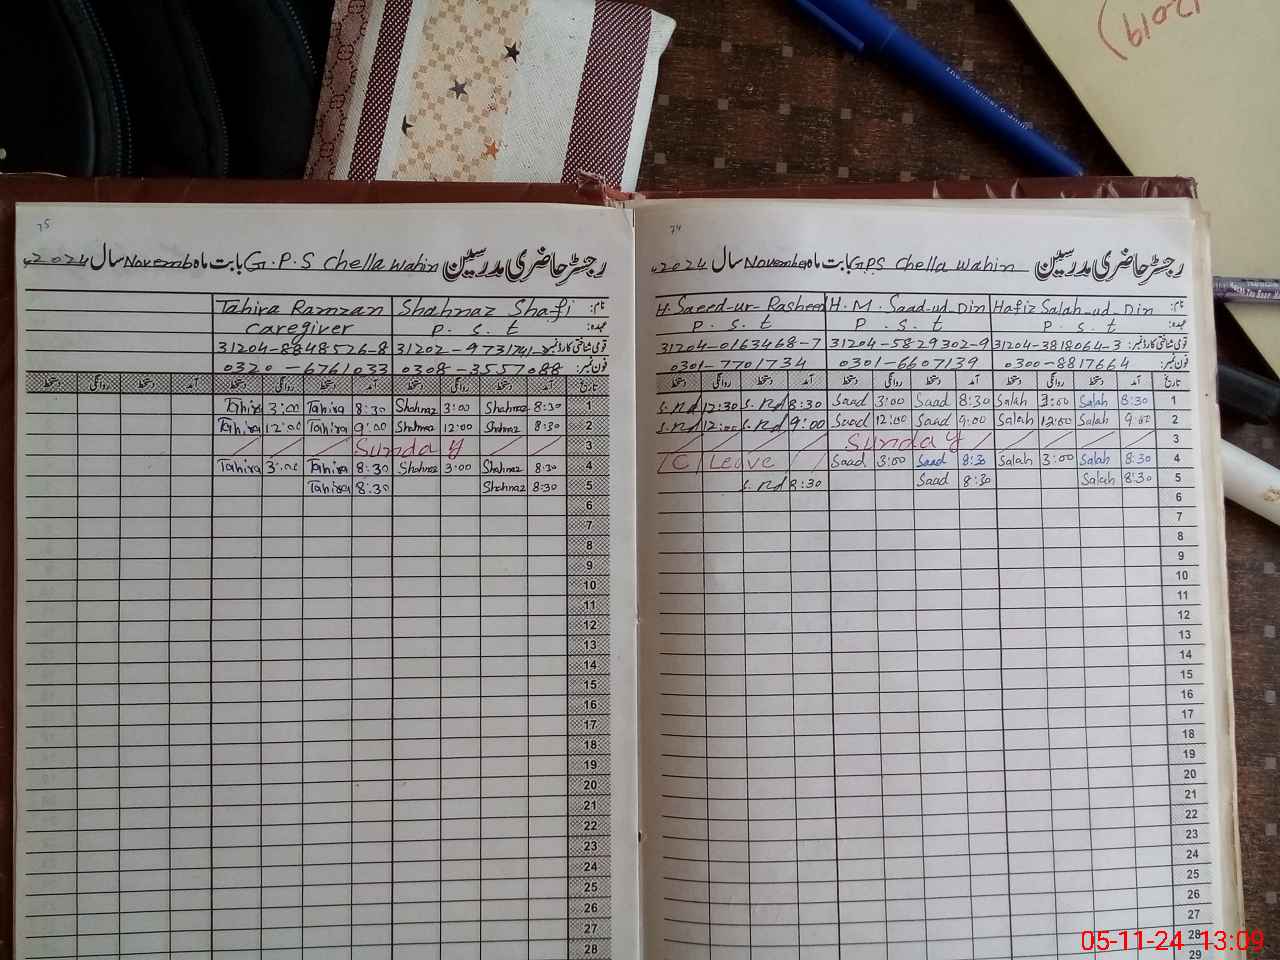 75
رجسٹر حاضری مدرسین G.P.S Chella wahin بابت ماہ November سال 2024ء
نام: Shahnaz Shafi Tahira Ramzan
عہدہ: P.S.t Caregiver
قومی شناختی کارڈ نمبر: 31204-8848526-8
فون نمبر: 0308-3557088 0320-6761033
تاریخ آمد دستخط روانگی دستخط آمد دستخط روانگی دستخط آمد دستخط روانگی دستخط
1 8:30 Shahnaz 3:00 Shahnaz 8:30 Tahira 3:00 Tahira
2 8:30 Shahnaz 12:00 Shahnaz 9:00 Tahira 12:00 Tahira
3 Sunday
4 8:30 Shahnaz 3:00 Shahnaz 8:30 Tahira 3:00 Tahira
5 8:30 Shahnaz 8:30 Tahira
6
7
8
9
10
11
12
13
14
15
16
17
18
19
20
21
22
23
24
25
26
27
28
74
رجسٹر حاضری مدرسین GPS Chella wahin بابت ماہ November سال 2024ء
نام: Hafiz Salah-ud-Din H.M.Saad-ud-Din H.Saeed-ur-Rasheed
عہدہ: P.S.t P.S.t P.S.t
قومی شناختی کارڈ نمبر: 31204-3818064-3 31204-5829302-9 31204-0163468-7
فون نمبر: 0300-8817664 0301-6607139 0301-7701734
تاریخ آمد دستخط روانگی دستخط آمد دستخط روانگی دستخط آمد دستخط روانگی دستخط
1 8:30 Salah 3:00 Salah 8:30 Saad 3:00 Saad 8:30 12:30
2 9:00 Salah 12:00 Salah 9:00 Saad 12:00 Saad 9:00 12:00
3 Sunday
4 8:30 Salah 3:00 Salah 8:30 Saad 3:00 Saad C Leave
5 8:30 Salah 8:30 Saad 8:30
6
7
8
9
10
11
12
13
14
15
16
17
18
19
20
21
22
23
24
25
26
27
28
29
2019
05-11-24 13:09